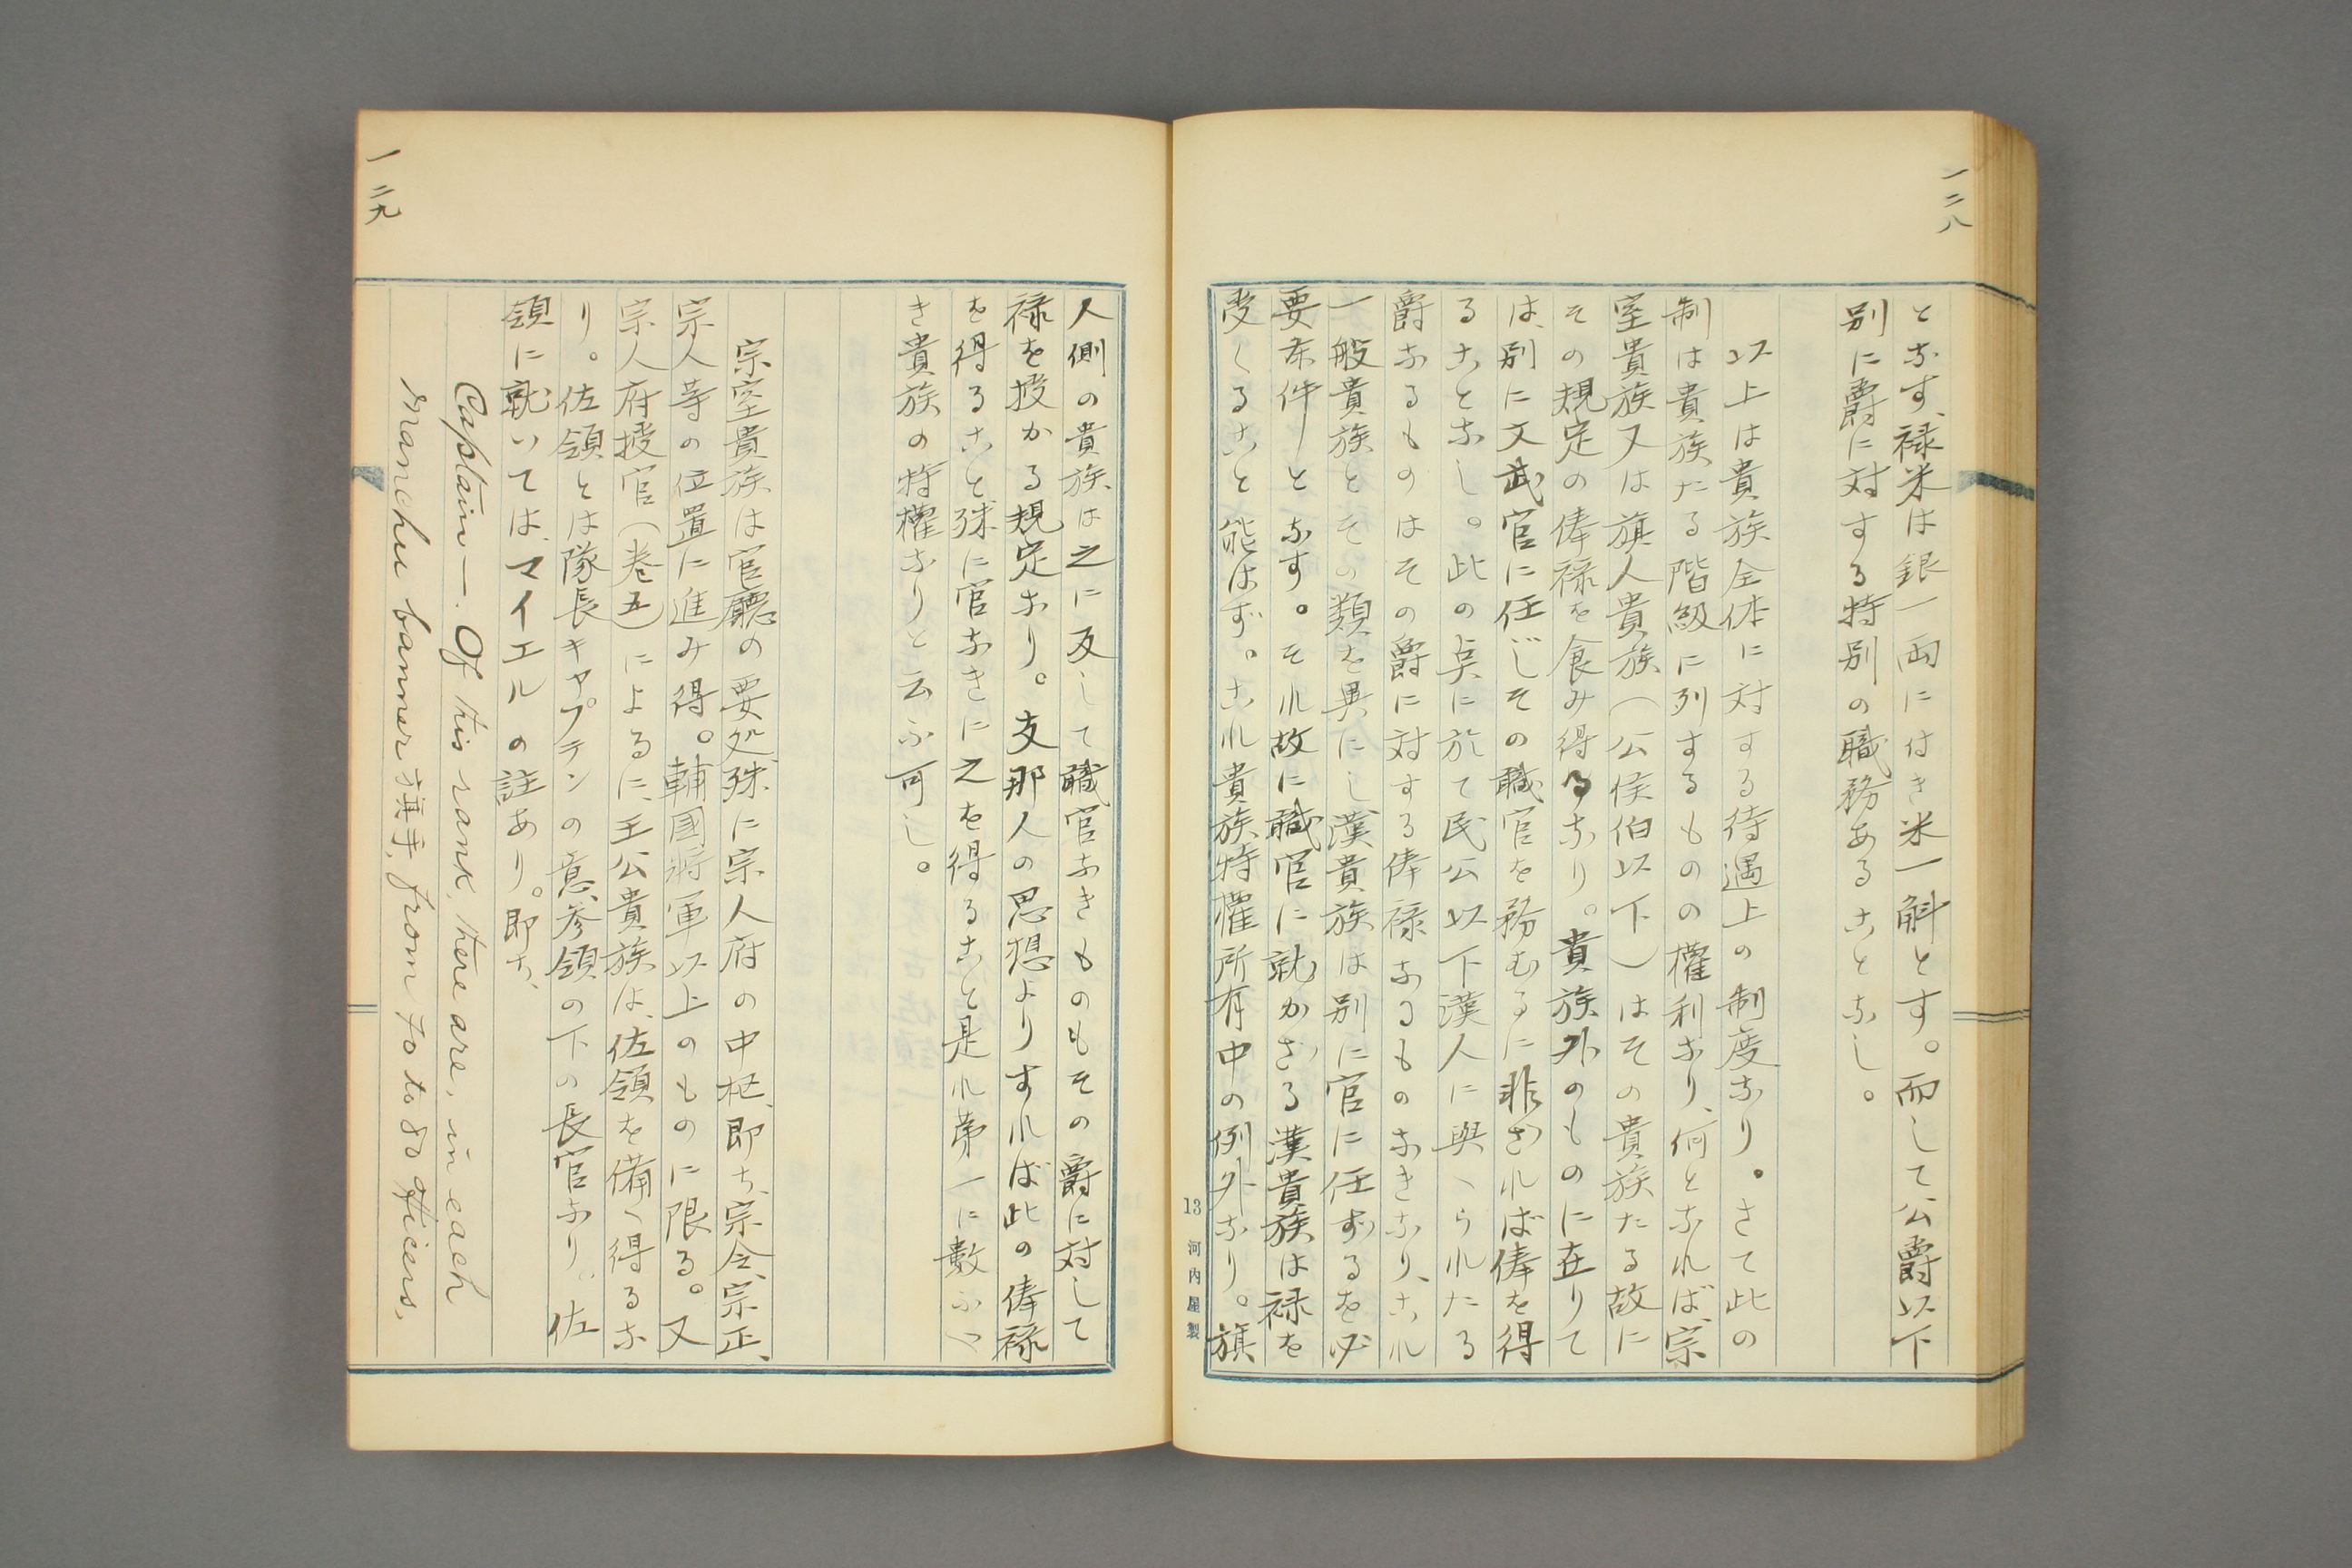 一二八
となす、禄米は銀一両に付き米一斛とす。而して公爵以下
別に爵に対する特別の職務あることなし。
以上は貴族全体に対する待遇上の制度なり。さて此の
制は貴族たる階級に列するものの權利なり、何となれば、宗
室貴族又は旗人貴族(公侯伯以下)はその貴族たる故に
その規定の俸禄を食み得るなり。貴族外のものに在りて
は、別に文武官に任じその職官を務むるに非ざれば俸を得
ることなし。此の点に於て民公以下漢人に與へられたる
爵なるものはその爵に対する俸禄なるものなきなり、これ
一般貴族とその類を異にし漢貴族は別に官に任ずるを必
要条件となす。それ故に職官に就かざる漢貴族は禄を
受くること能はず。これ貴族特權所有中の例外なり。旗
13 河内屋製
一二九
人側の貴族は之に反して職官なきものもその爵に対して
禄を授かる規定なり。支那人の思想よりすれば此の俸禄
を得ること殊に官なきに之を得ること是れ第一に數ふべ
き貴族の特權なりと云ふ可し。
宗室貴族は官廳の要処、殊に宗人府の中枢、即ち、宗令、宗正、
宗人等の位置に進み得。輔國將軍以上のものに限る。又
宗人府授官(巻五)によるに、王公貴族は、佐領を備へ得るな
り。佐領とは隊長キャプテンの意、参領の下の長官なり。佐
領に就いては、マイエルの註あり。即ち、
Captain—. Of this rank, there are, in each
Manchu banner 旗手, from 70 to 80 officers,